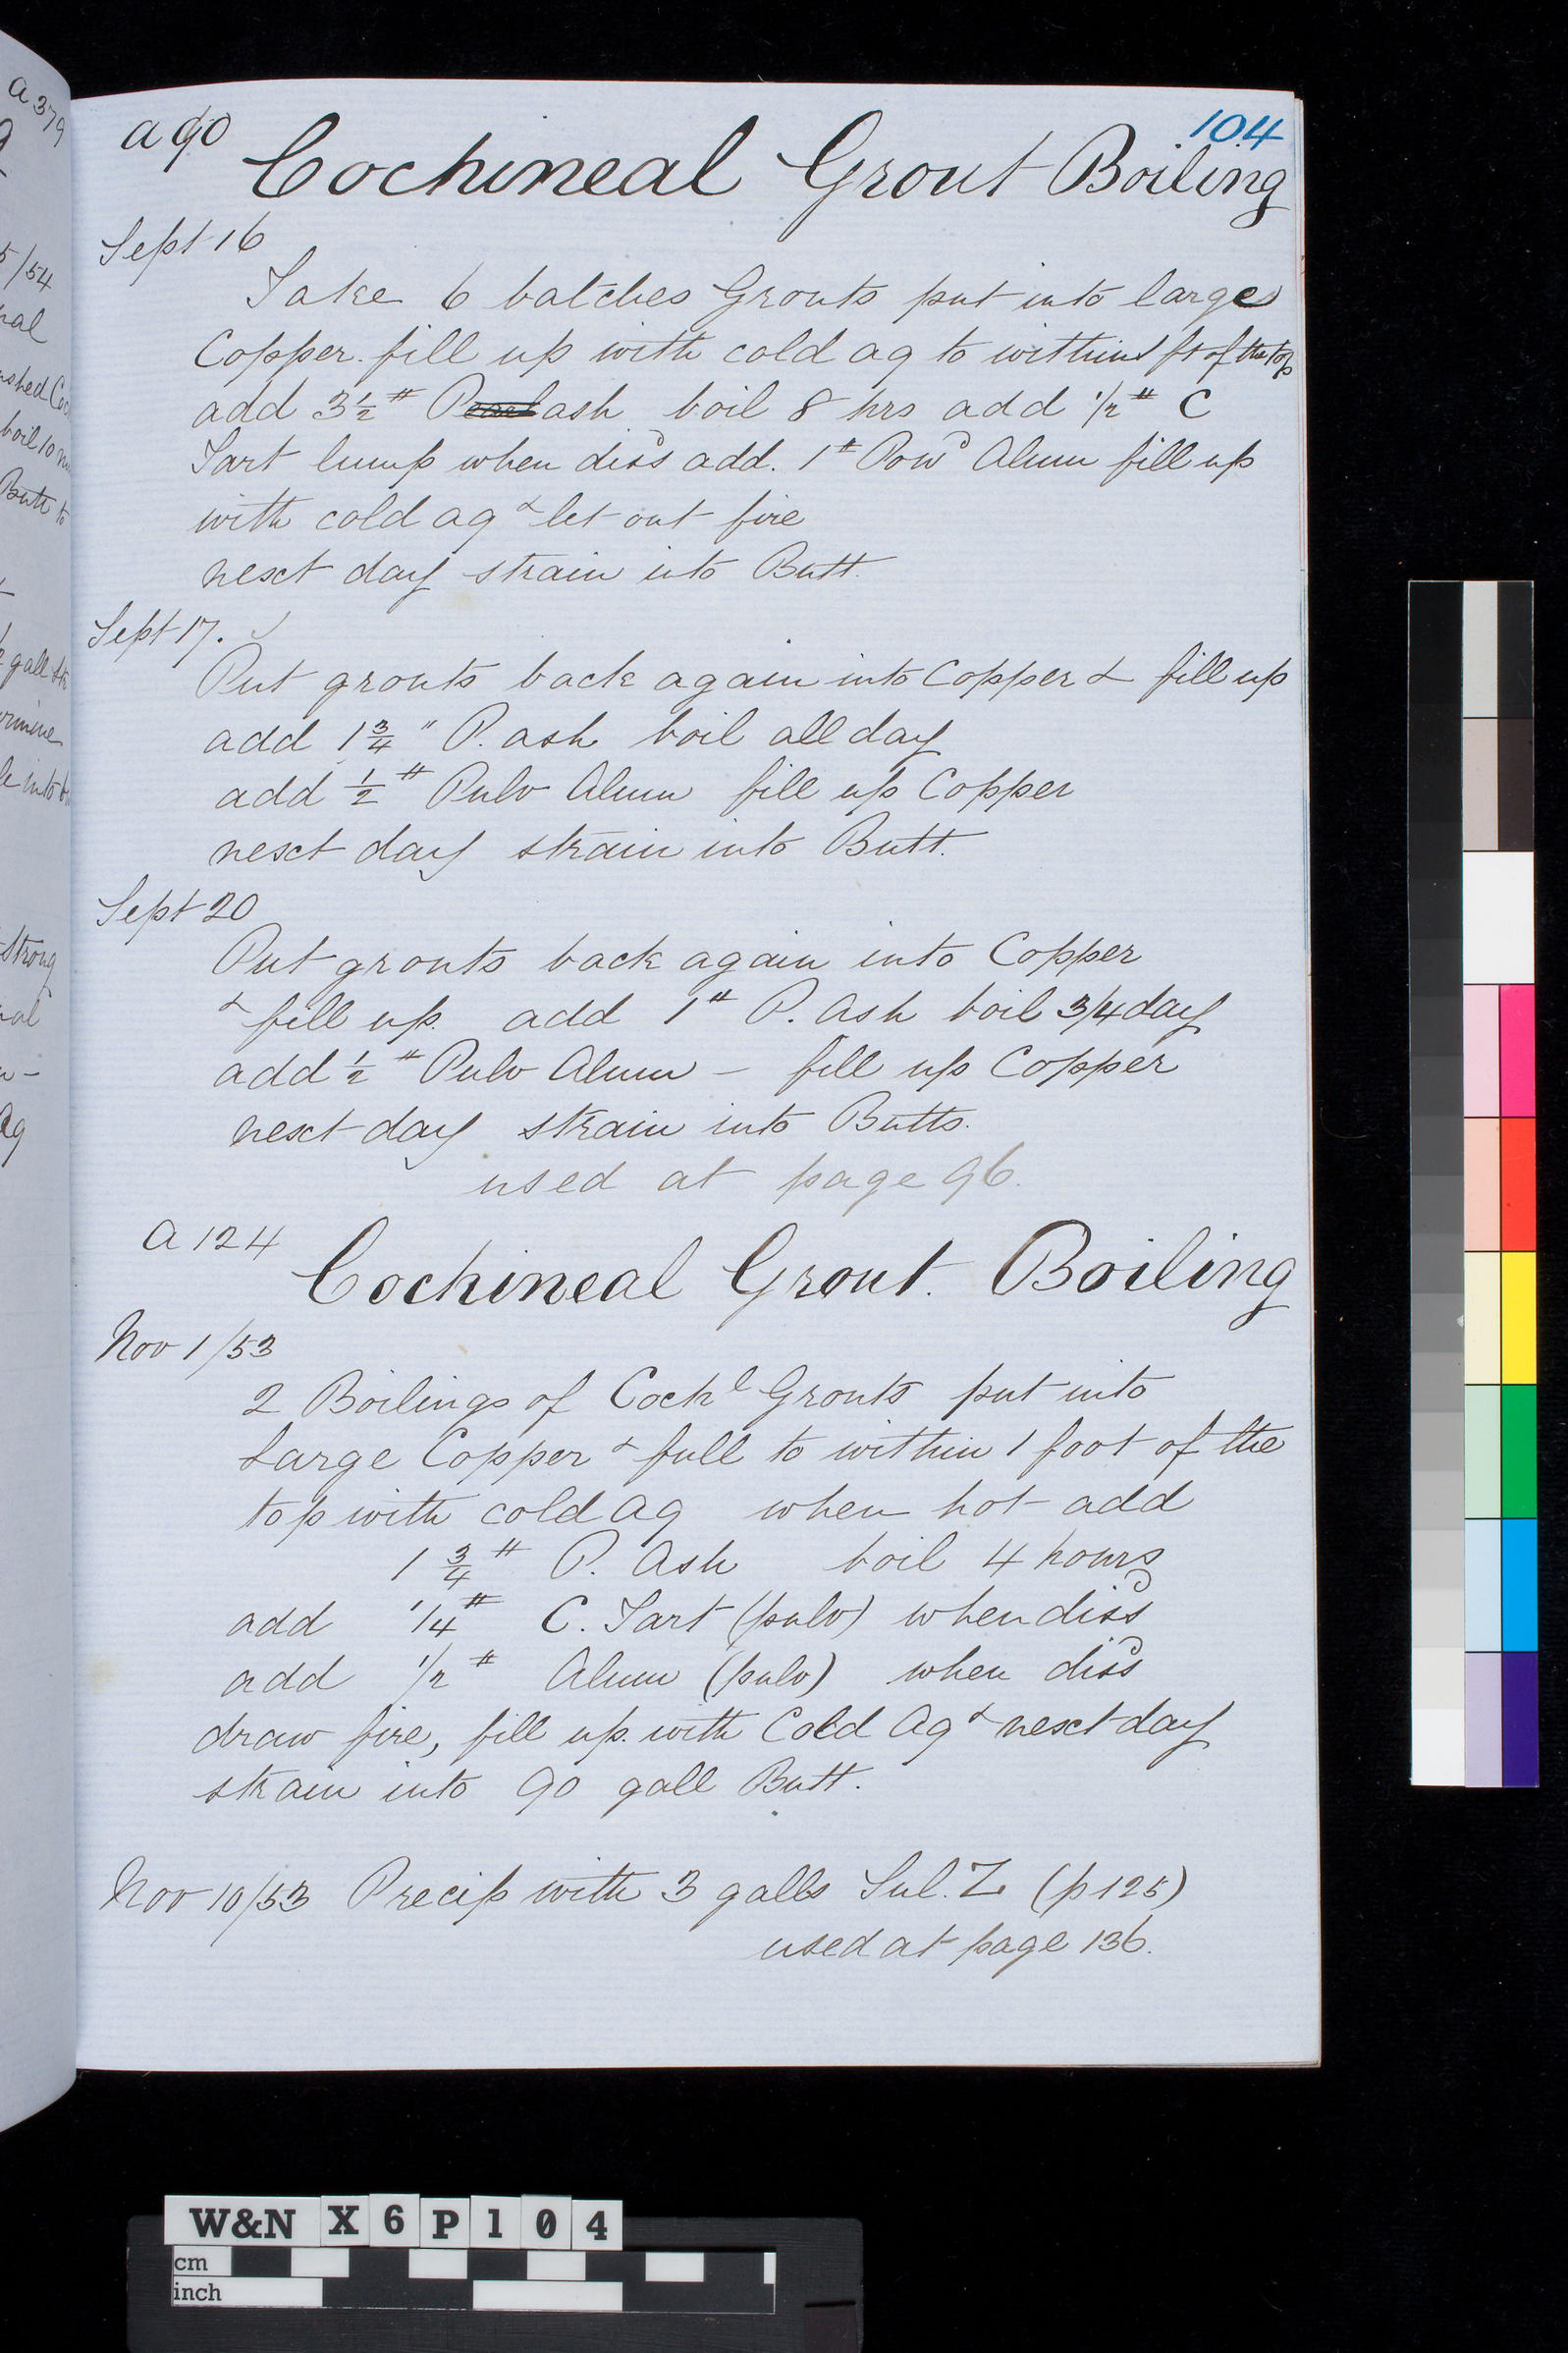 a 90
104
Cochineal Grout Boiling
Sept 16
Take 6 batches Grouts put into large
Copper. fill up with cold aq to within 1 ft of the top
add 3 1/2 # Pearlash boil 8 hrs add 1/2 # C
Tart lump when dissd add. 1# Powd Alum fill up
with cold aq & let out fire
next day strain into Butt.
Sept 17.
Put grouts back again into Copper & fill up
add 1 3/4 " P. ash boil all day
add 1/2 # Pulv Alum fill up Copper
next day strain into Butt.
Sept 20
Put grouts back again into Copper
& fill up. add 1# P. Ash boil 3/4 day
add 1/2 # Pulv Alum – fill up Copper
next day strain into Butts.
used at page 96.
a 124
Cochineal Grout. Boiling
Nov 1/53
2 Boilings of Cochl Grouts put into
Large Copper & full to within 1 foot of the
top with cold aq when hot add
1 3/4 # P. Ash boil 4 hours
add 1/4 # C. Tart (pulv) when dissd
add 1/2 # Alum (pulv) when dissd
draw fire, fill up. with Cold Aq & next day
strain into 90 gall Butt.
Nov 10/53 Precip with 3 galls Sul. Z (p 125)
used at page 136.
a 379
5/54
boil 10
Butt to
gall
into
Strong
aq
W&N X 6 P 1 0 4
cm
inch